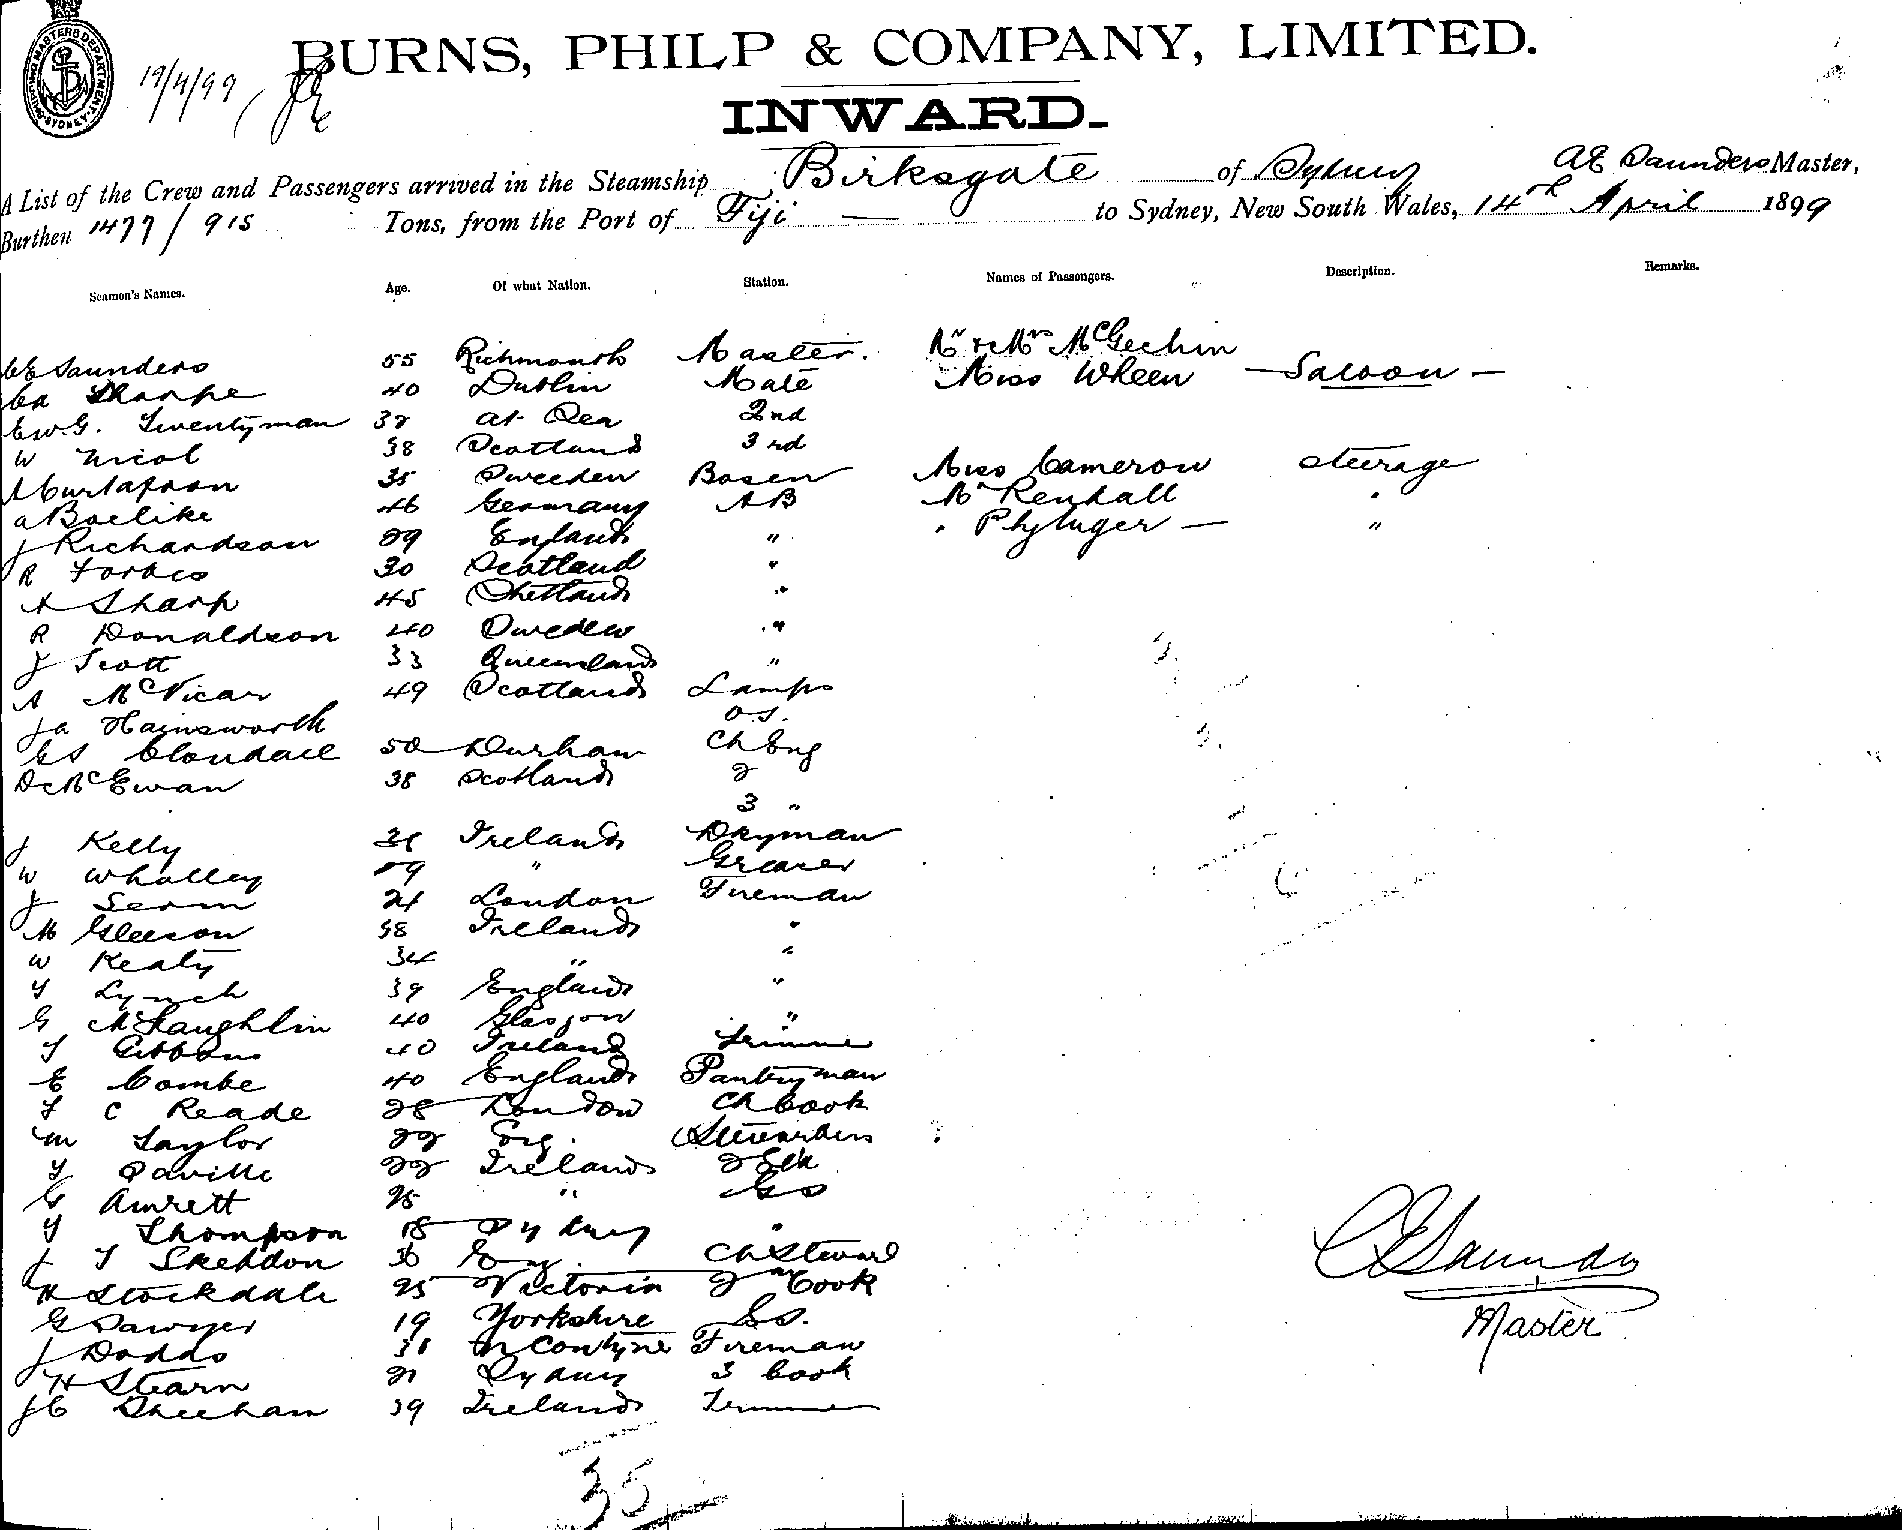 SHIPPING MASTERS DEPARTMENT SYDNEY
19/4/99
BURNS, PHILP & COMPANY, LIMITED.
INWARD.
A List of the Crew and Passengers arrived in the Steamship Birksgate of Sydney AE Saunders Master,
Burthen 1477/915 Tons, from the Port of Fiji to Sydney, New South Wales, 14th April 1899
Seamen's Names. Age. Of what Nation. Station. Names of Passengers. Description. Remarks.
Saunders 55 Richmouth Master. Mr & Mrs McGechin
Sharpe 40 Dublin Mate Miss Wheen — Saloon —
E W.G. Twentyman 38 at Sea 2nd
W Nicol 38 Scotland 3rd
A Gustafson 35 Sweeden Bosen Miss Cameron Steerage
a Boelike 46 Germany AB Mr Renhall "
J Richardson 29 England " " —  "
R Forbes 30 Scotland "
A Sharp 45 Shetland "
R Donaldson 40 Sweden "
J Scott 33 Queensland "
A McVicar 49 Scotland Lamps
Ja Hainsworth O.S.
Clondall 50 Durham Ch Eng
D McEwan 38 Scotland 2
3 "
J Kelly Ireland Dkyman
W Whalley 59 " Greaser
J 24 London Fireman
M Gleeson 38 Ireland "
W Keaty 34 " "
T Lynch 39 England "
G McLaughlin 40 Glasgow "
T Gibbons 40 Ireland Trimmer
E Combe 40 England Pantryman
F C Reade 28 London Ch Cook
M Taylor 22 Eng. Stewardess
T Saville 22 Ireland
G Amrett 25 " GS
T Thompson 18 Sydney "
J T Skeldon 36 Eng. Ch Steward
H Stockdale 25 Victoria 2nd Cook
G Sawyer 19 Yorkshire
J Dodds Fireman
H Stearn 21 Sydney 3 Cook
J C Sheehan 39 Ireland Trimmer
35
Saunders
Master